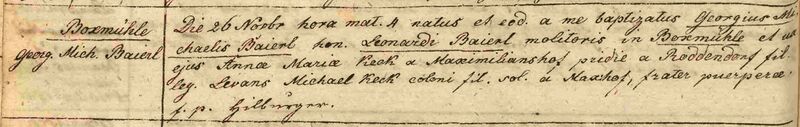 Boxmühle
Georg. Mich. Baierl
Die 26 Novbr hora mat. 4 natus et eod. a me baptizatus Georgius Mi-
chaelis Baierl hon. Leonardi Baierl molitoris in Boxmühle et ux
ejus Annæ Mariæ Keck a Maximilianshof pridie a Roddendorf fil.
leg. Levans Michael Keck coloni fil. sol. a Maxhof, frater puerperæ.
f. p. Hilburger.